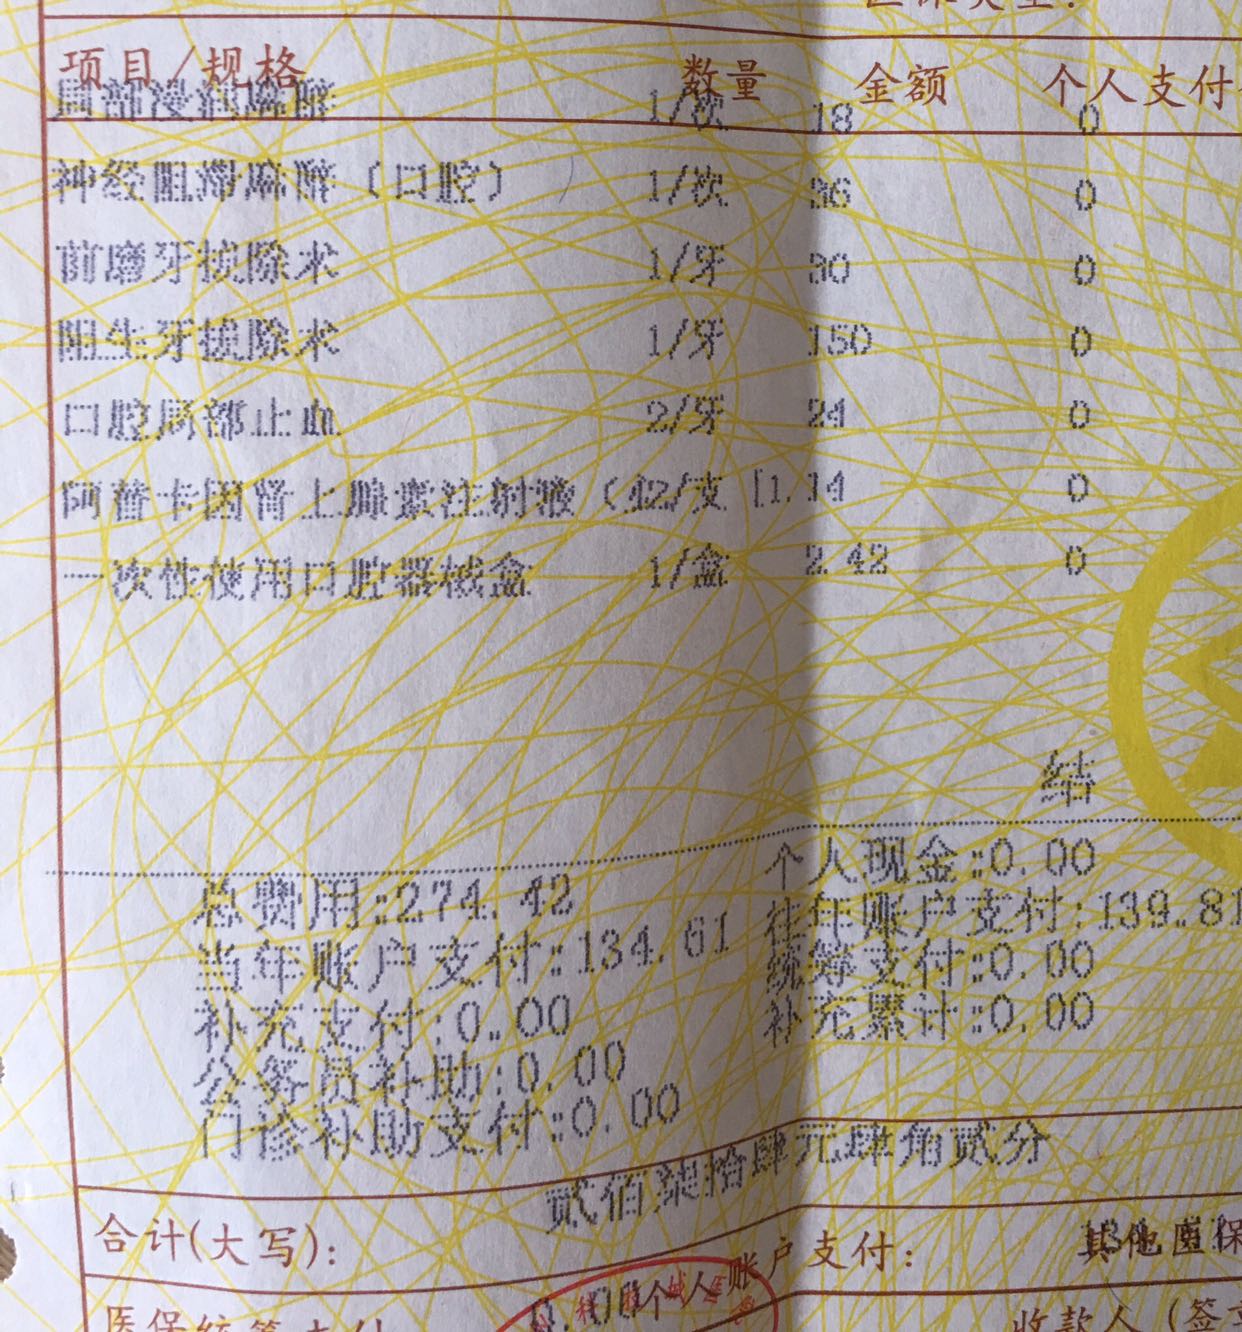 项目/规格 数量 金额 个人支付
局部浸润麻醉 1/次 18 0
神经阻滞麻醉（口腔） 1/次 36 0
前磨牙拔除术 1/牙 30 0
阻生牙拔除术 1/牙 150 0
口腔局部止血 2/牙 24 0
阿替卡因肾上腺素注射液（42/支 [1.14 0
一次性使用口腔器械盒 1/盒 2.42 0
结
总费用:274.42 个人现金:0.00
当年账户支付:134.61 往年账户支付:139.81
补充支付:0.00 统筹支付:0.00
公务员补助:0.00 补充累计:0.00
门诊补助支付:0.00
合计(大写): 贰佰柒拾肆元肆角贰分
个人账户支付: 其他医保
收款人（签章